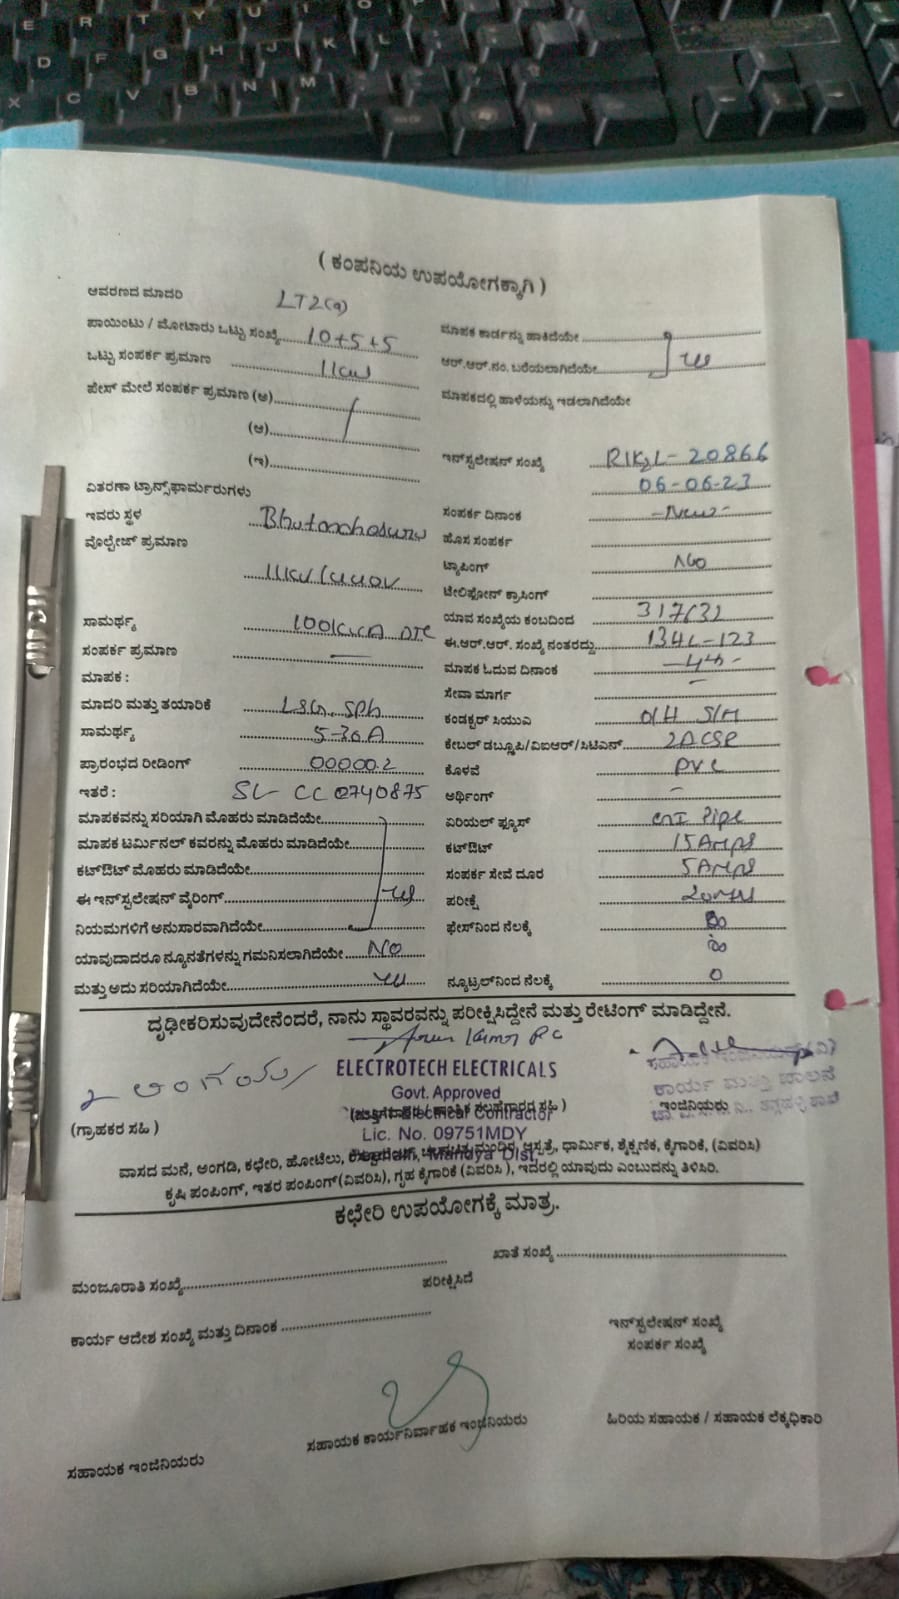 ( ಕಂಪನಿಯ ಉಪಯೋಗಕ್ಕಾಗಿ )
ಆವರಣದ ಮಾದರಿ LT2(a)
ಪಾಯಿಂಟು / ಮೋಟಾರು ಒಟ್ಟು ಸಂಖ್ಯೆ 10+5+5
ಒಟ್ಟು ಸಂಪರ್ಕ ಪ್ರಮಾಣ 1Kw
ಫೇಸ್ ಮೇಲೆ ಸಂಪರ್ಕ ಪ್ರಮಾಣ (ಅ)
(ಆ)
(ಇ)
ವಿತರಣಾ ಟ್ರಾನ್ಸ್‌ಫಾರ್ಮರುಗಳು
ಇವರು ಸ್ಥಳ
ವೊಲ್ಟೇಜ್ ಪ್ರಮಾಣ
11KV/440V
ಸಾಮರ್ಥ್ಯ 100KVA DTC
ಸಂಪರ್ಕ ಪ್ರಮಾಣ
ಮಾಪಕ :
ಮಾದರಿ ಮತ್ತು ತಯಾರಿಕೆ
ಸಾಮರ್ಥ್ಯ 5-30A
ಪ್ರಾರಂಭದ ರೀಡಿಂಗ್ 00000.2
ಇತರೆ : SL- CC0740875
ಮಾಪಕವನ್ನು ಸರಿಯಾಗಿ ಮೊಹರು ಮಾಡಿದೆಯೇ
ಮಾಪಕ ಟರ್ಮಿನಲ್ ಕವರನ್ನು ಮೊಹರು ಮಾಡಿದೆಯೇ
ಕಟ್‌ಔಟ್ ಮೊಹರು ಮಾಡಿದೆಯೇ
ಈ ಇನ್‌ಸ್ಟಲೇಷನ್ ವೈರಿಂಗ್
ನಿಯಮಗಳಿಗೆ ಅನುಸಾರವಾಗಿದೆಯೇ
ಯಾವುದಾದರೂ ನ್ಯೂನತೆಗಳನ್ನು ಗಮನಿಸಲಾಗಿದೆಯೇ NO
ಮತ್ತು ಅದು ಸರಿಯಾಗಿದೆಯೇ
ಮಾಪಕ ಕಾರ್ಡನ್ನು ಹಾಕಿದೆಯೇ
ಆರ್.ಆರ್.ನಂ. ಬರೆಯಲಾಗಿದೆಯೇ
ಮಾಪಕದಲ್ಲಿ ಹಾಳೆಯನ್ನು ಇಡಲಾಗಿದೆಯೇ
ಇನ್‌ಸ್ಟಲೇಷನ್ ಸಂಖ್ಯೆ 20866
06-06-23
ಸಂಪರ್ಕ ದಿನಾಂಕ -New-
ಹೊಸ ಸಂಪರ್ಕ
ಟ್ಯಾಪಿಂಗ್ NO
ಟೆಲಿಫೋನ್ ಕ್ರಾಸಿಂಗ್
ಯಾವ ಸಂಖ್ಯೆಯ ಕಂಬದಿಂದ
ಈ.ಆರ್.ಆರ್. ಸಂಖ್ಯೆ ನಂತರದ್ದು
ಮಾಪಕ ಓದುವ ದಿನಾಂಕ -4th-
ಸೇವಾ ಮಾರ್ಗ
ಕಂಡಕ್ಟರ್ ಸಿಯುವಿ O/H S/M
ಕೇಬಲ್ ಡಬ್ಲ್ಯೂಪಿ/ವಿಐಆರ್/ಸಿಟಿಎನ್
ಕೊಳವೆ PVC
ಅರ್ಥಿಂಗ್ -
ಏರಿಯಲ್ ಫ್ಯೂಸ್ GI Pipe
ಕಟ್‌ಔಟ್ 15Amps
ಸಂಪರ್ಕ ಸೇವೆ ದೂರ 5Amps
ಪರೀಕ್ಷೆ
ಫೇಸ್‌ನಿಂದ ನೆಲಕ್ಕೆ
ನ್ಯೂಟ್ರಲ್‌ನಿಂದ ನೆಲಕ್ಕೆ 0
ದೃಢೀಕರಿಸುವುದೇನೆಂದರೆ, ನಾನು ಸ್ಥಾವರವನ್ನು ಪರೀಕ್ಷಿಸಿದ್ದೇನೆ ಮತ್ತು ರೇಟಿಂಗ್ ಮಾಡಿದ್ದೇನೆ.
ELECTROTECH ELECTRICALS
Govt. Approved
Electrical Contractor
Lic. No. 09751MDY
Mandya Dist.
ಕಾರ್ಯ ಮತ್ತು ಪಾಲನೆ
(ಗ್ರಾಹಕರ ಸಹಿ )
ಇಂಜಿನಿಯರು
ವಾಸದ ಮನೆ, ಅಂಗಡಿ, ಕಛೇರಿ, ಹೋಟೆಲು, ಆಸ್ಪತ್ರೆ, ಧಾರ್ಮಿಕ, ಶೈಕ್ಷಣಿಕ, ಕೈಗಾರಿಕೆ, (ವಿವರಿಸಿ)
ಕೃಷಿ ಪಂಪಿಂಗ್, ಇತರ ಪಂಪಿಂಗ್(ವಿವರಿಸಿ), ಗೃಹ ಕೈಗಾರಿಕೆ (ವಿವರಿಸಿ ), ಇದರಲ್ಲಿ ಯಾವುದು ಎಂಬುದನ್ನು ತಿಳಿಸಿರಿ.
ಕಛೇರಿ ಉಪಯೋಗಕ್ಕೆ ಮಾತ್ರ.
ಖಾತೆ ಸಂಖ್ಯೆ
ಮಂಜೂರಾತಿ ಸಂಖ್ಯೆ
ಪರೀಕ್ಷಿಸಿದೆ
ಕಾರ್ಯ ಆದೇಶ ಸಂಖ್ಯೆ ಮತ್ತು ದಿನಾಂಕ
ಇನ್‌ಸ್ಟಲೇಷನ್ ಸಂಖ್ಯೆ
ಸಂಪರ್ಕ ಸಂಖ್ಯೆ
ಸಹಾಯಕ ಇಂಜಿನಿಯರು
ಸಹಾಯಕ ಕಾರ್ಯನಿರ್ವಾಹಕ ಇಂಜಿನಿಯರು
ಹಿರಿಯ ಸಹಾಯಕ / ಸಹಾಯಕ ಲೆಕ್ಕಧಿಕಾರಿ